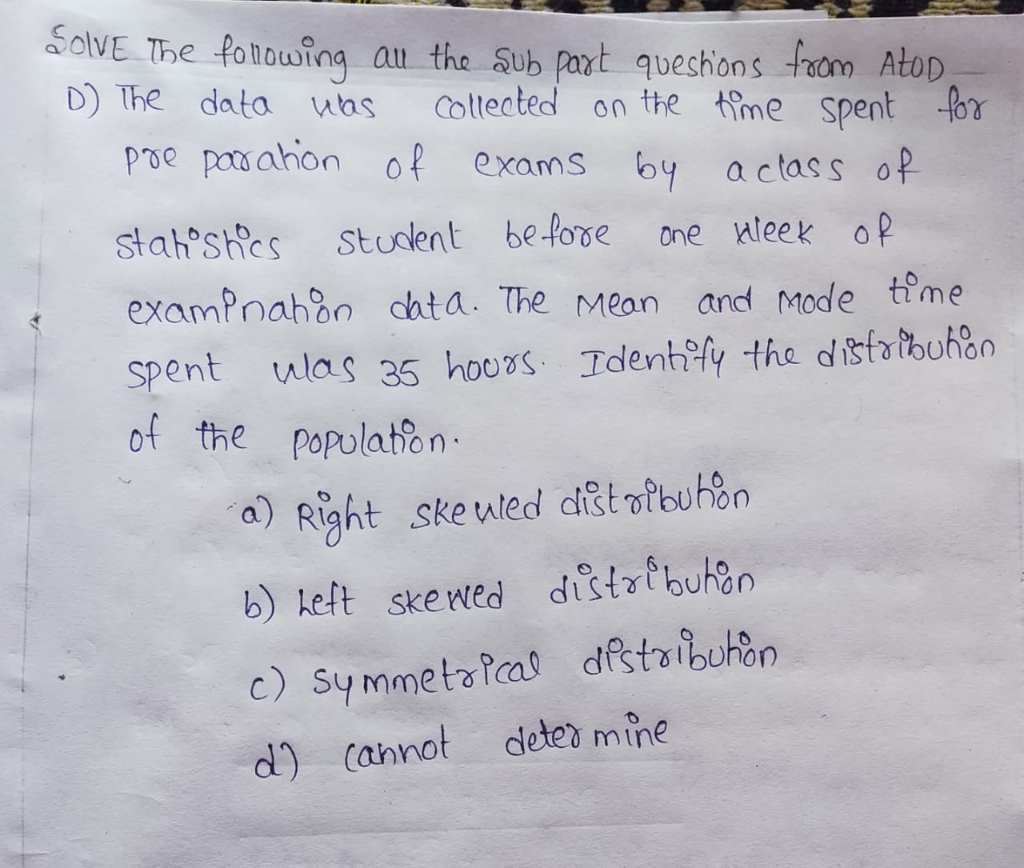 SOLVE The following all the Sub part questions from AtoD
D) The data was collected on the time spent for
pre paration of exams by a class of
statistics student before one week of
examination data. The Mean and Mode time
spent was 35 hours. Identify the distribution
of the population.
a) Right skewed distribution
b) Left skewed distribution
c) Symmetrical distribution
d) Cannot determine